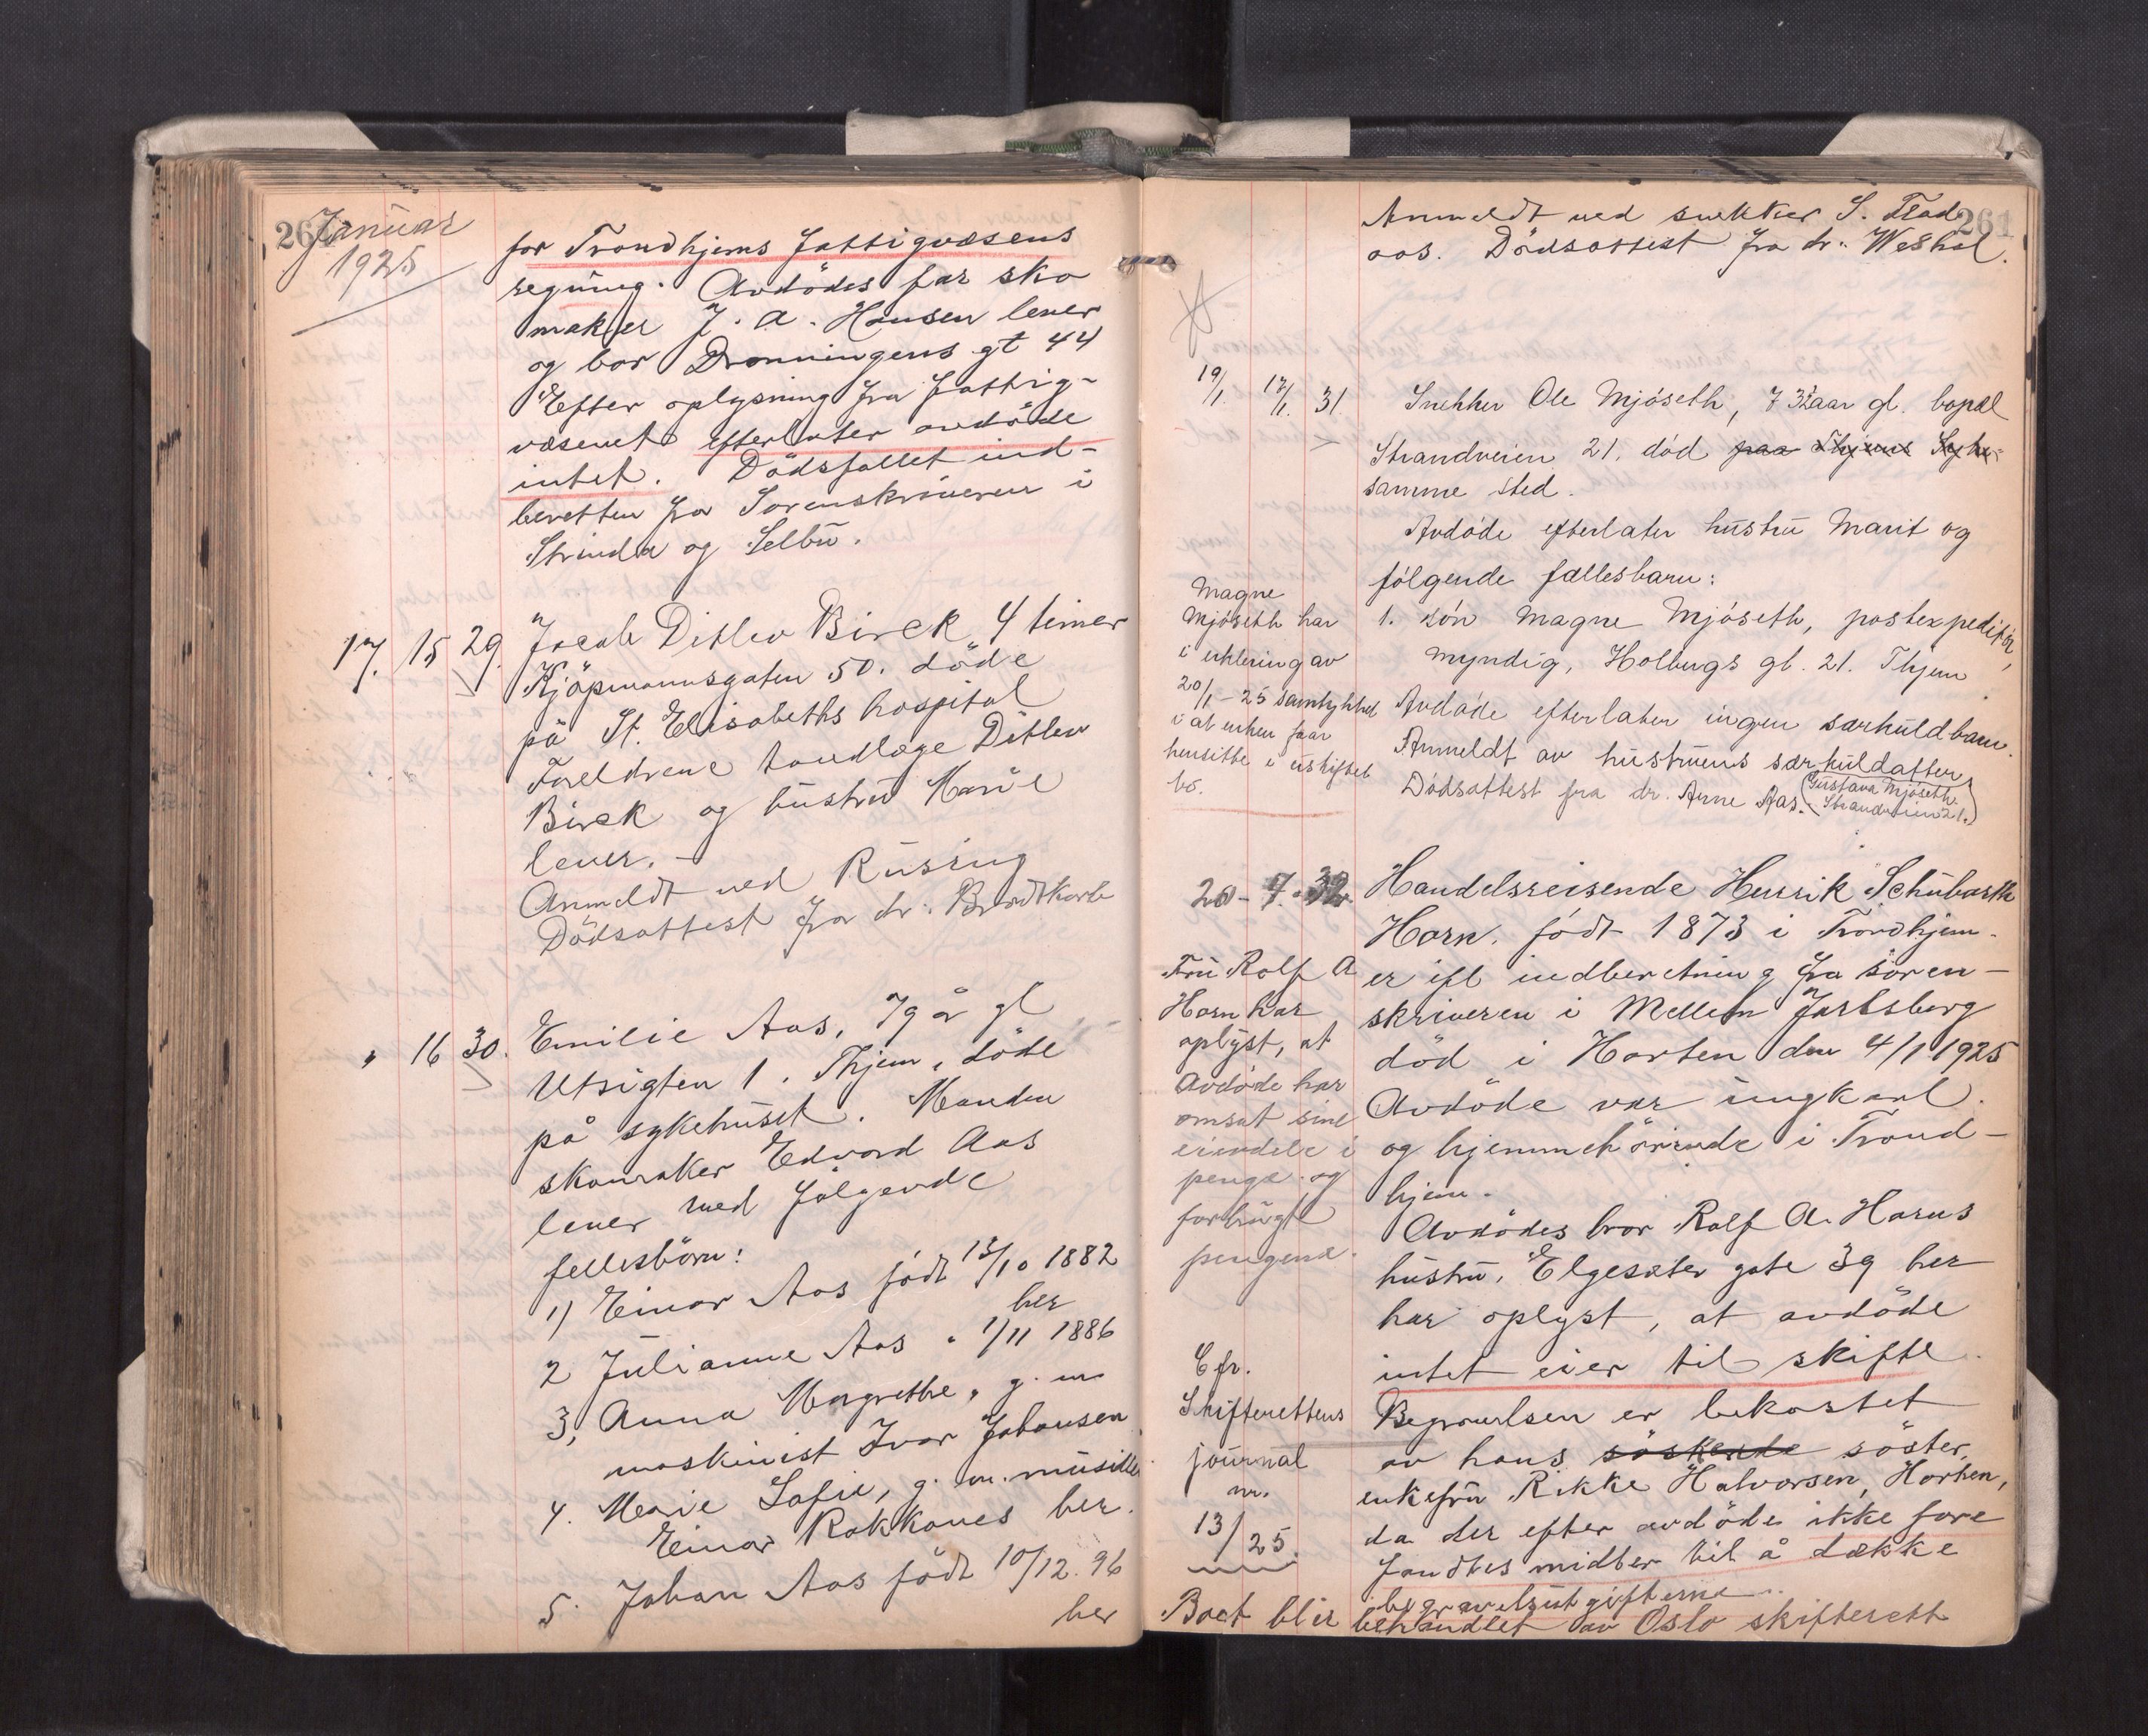 260
Januar
1925
for Trondhjems fattigvæsens
regning. Avdödes far sko
maker J. A. Hansen lever
og bor Dronningens gt 44
Efter oplysning fra fattig-
væsenet efterlater avdöde
intet. Dödsfallet ind-
berettet fra Sorenskriveren i
Strinda og Selbu.
17. 15 29. Jacob Ditlev Birck, 4 timer
Kjöpmannsgaten 50. döde
på St. Elisabeths hospital
Foreldrene tandlæge Ditlev
Birck og hustru Marie
lever. -
Anmeldt ved Rusing
Dödsattest fra dr. Brodtkorb
" 16 30. Emilie Aas, 79 år gl
Utsigten 1. Thjem, döde
på sykehuset. Manden
skomaker Edvard Aas
lever med fölgende
fellesbörn:
1) Einar Aas födt 13/10 1882
her
2 Julianne Aas " 1/11 1886
3, Anna Margrethe, g. m
maskinist Ivar Johansen
4. Marie Sofie, g. m. musiker
Einar Rokkones her.
5. Johan Aas födt 10/12. 96
her
261
Anmeldt ved snekker S. Flad
aas. Dödsattest fra dr. Weshol.
19/1. 17/1. 31 Snekker Ole Mjöseth, 73 aar gl. bopæl
Strandveien 21. död paa Thjems Syke-
samme sted.
Avdöde efterlater hustru Marit og
fölgende fællesbarn:
1. sön Magne Mjöseth, postexpeditör,
myndig, Holbergs gt. 21. Thjem
Avdöde efterlater ingen særkuldbarn.
Anmeldt av hustruens særkuldatter
Dödsattest fra dr. Arne Aas. (Gustava Mjöseth
Strandveien 21.)
Magne
Mjöseth har
i erklering av
20/1-25 samtykket
i at enken faar
hensitte i uskiftet
bo.
20 - 7. 32. Handelsreisende Henrik Schübarth
Horn. födt 1873 i Trondhjem.
er ifl indberetning fra soren-
skriveren i Mellem Jarlsberg
död i Horten den 4/1 1925
Avdöde var ungkarl.
og hjemmehörende i Trond-
hjem.
Avdödes bror Rolf A. Horns
hustru, Elgesæter gate 39 her
har oplyst, at avdöde
intet eier til skifte.
Begravelsen er bekostet
av hans söskende söster,
enkefru Rikke Halvorsen, Horten,
da der efter avdöde ikke fore
fandtes midler til å dække
begravelsutgifterne.
Fru Rolf A
Horn har
oplyst, at
Avdöde har
omsat sine
eiendele i
penge og
forbrugt
pengene.
Cfr.
Skifterettens
journal
nr.
13/25.
Boet blir behandlet av Oslo skifterett